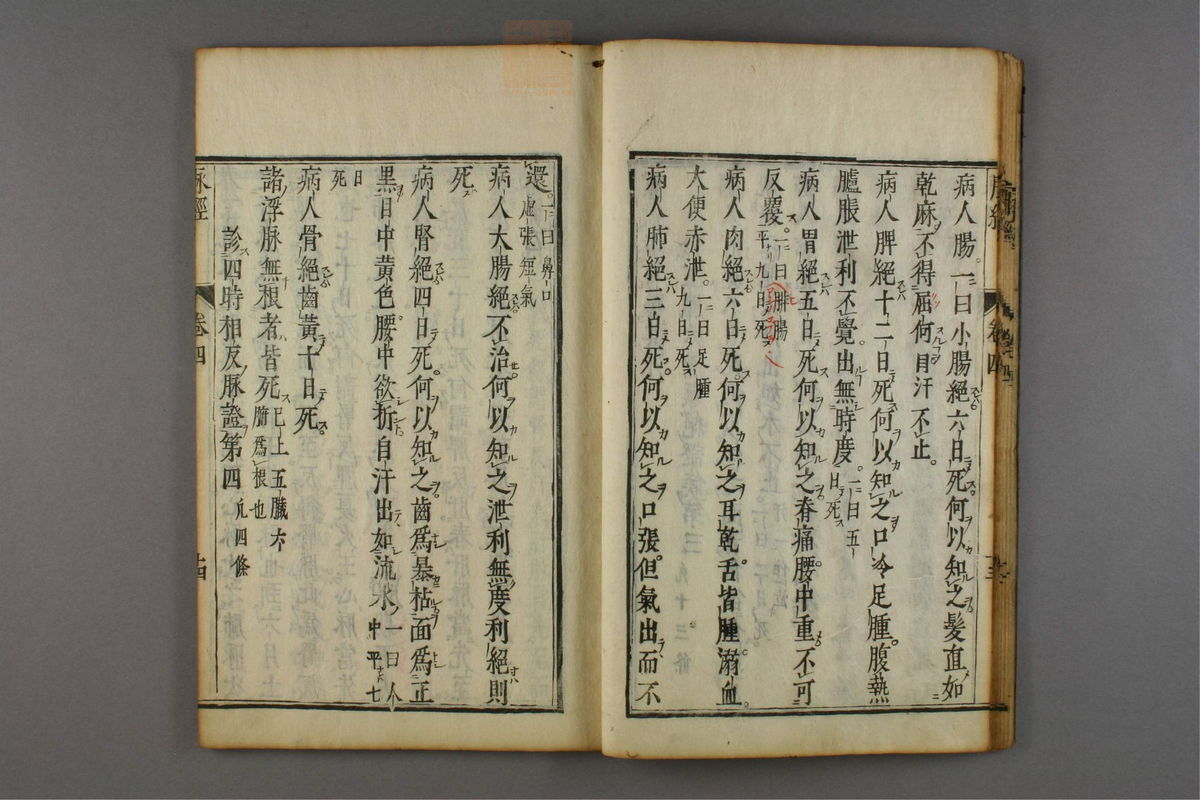 病人腸一曰小腸絕六日死何以知之髮直如
乾麻不得屈伸白汗不止
病人脾絕十二日死何以知之口冷足腫腹熱
臚脹泄利不覺出無時度一曰五日死
病人胃絕五日死何以知之脊痛腰中重不可
反覆一曰腓腸平九日死
病人肉絕六日死何以知之耳乾舌皆腫溺血
大便赤泄一曰足腫九日死
病人肺絕三日死何以知之口張但氣出而不
還一曰鼻口虛張短氣
病人大腸絕不治何以知之泄利無度利絕則
死
病人腎絕四日死何以知之齒為暴枯面為正
黑目中黃色腰中欲折自汗出如流水一曰人中平七
日死
病人骨絕齒黃十日死
諸浮脉無根者皆死已上五臟六腑為根也
診四時相反脉證第四凡四條
脉經
卷四
十四
卷四